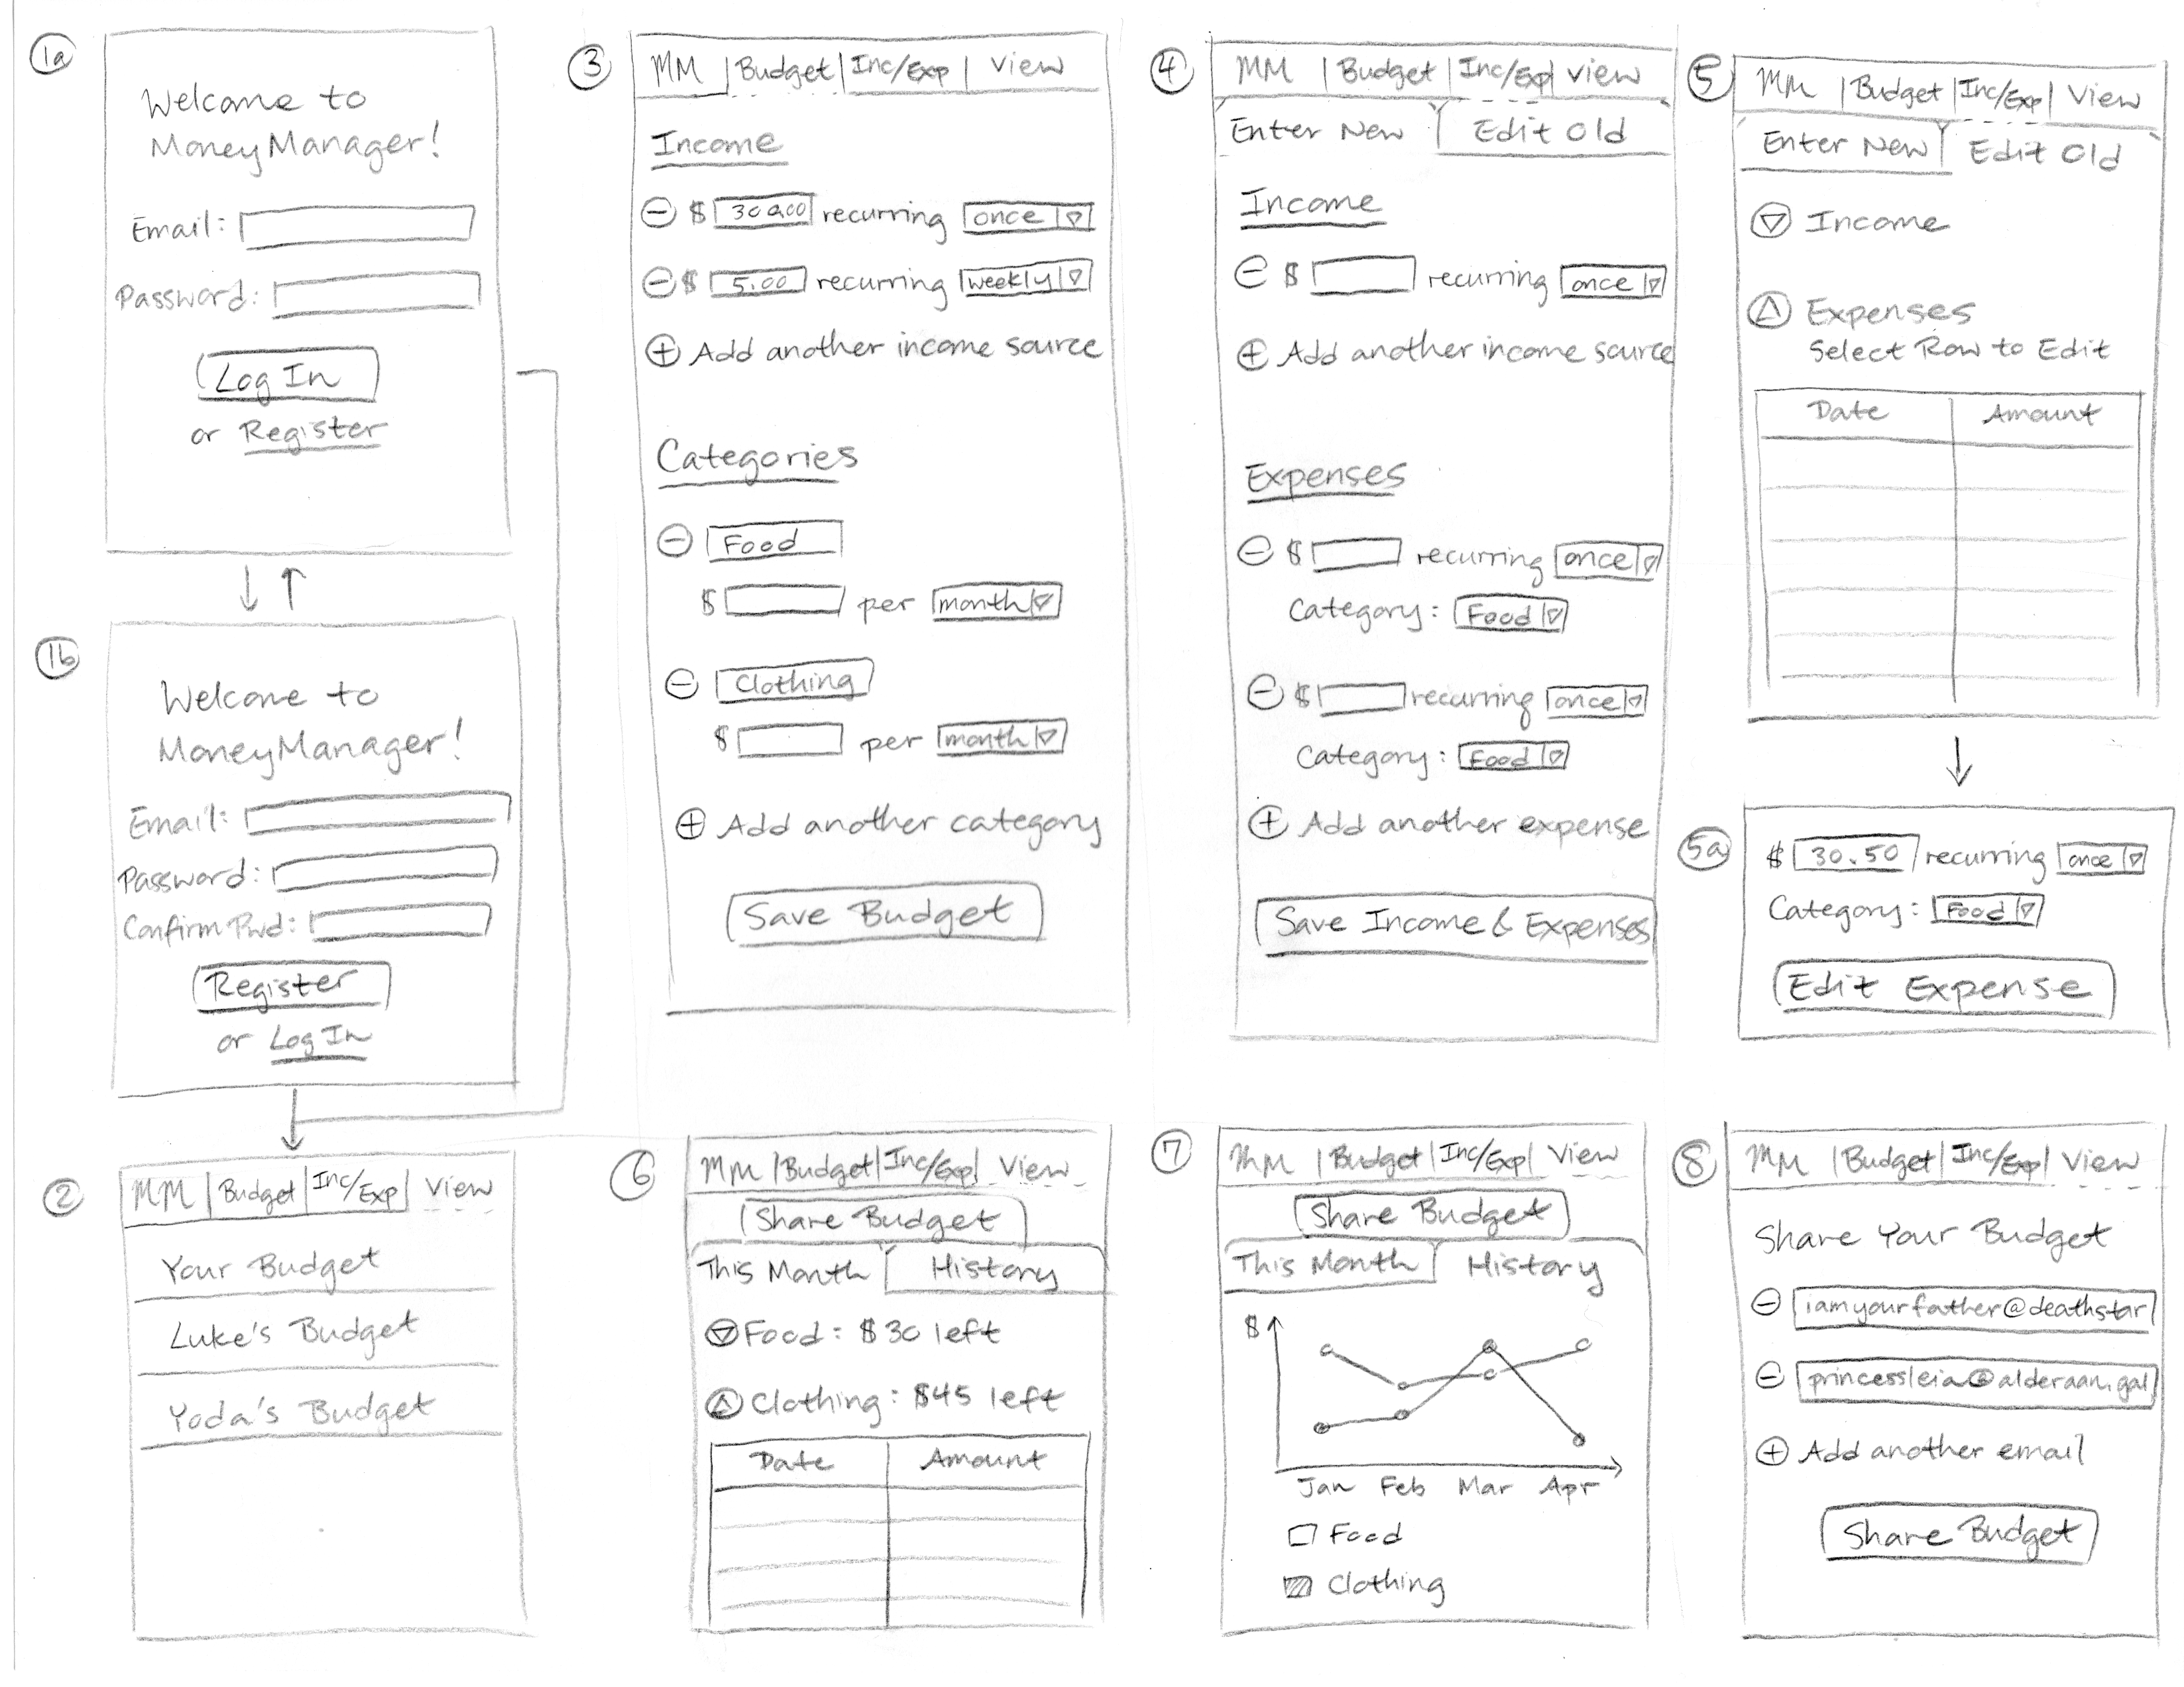 1a
Welcome to
MoneyManager!
Email:
Password:
Log In
or Register
1b
Welcome to
MoneyManager!
Email:
Password:
Confirm Pwd:
Register
or Log In
2
MM | Budget | Inc/Exp | View
Your Budget
Luke's Budget
Yoda's Budget
3
MM | Budget | Inc/Exp | View
Income
$ 300.00 recurring once
$ 5.00 recurring weekly
Add another income source
Categories
Food
$ per month
Clothing
$ per month
Add another category
Save Budget
4
MM | Budget | Inc/Exp | View
Enter New Edit Old
Income
$ recurring once
Add another income source
Expenses
$ recurring once
Category: Food
$ recurring once
Category: Food
Add another expense
Save Income & Expenses
5
MM | Budget | Inc/Exp | View
Enter New Edit Old
Income
Expenses
Select Row to Edit
Date Amount
5a
$ 30.50 recurring once
Category: Food
Edit Expense
6
MM | Budget | Inc/Exp | View
Share Budget
This Month History
Food: $30 left
Clothing: $45 left
Date Amount
7
MM | Budget | Inc/Exp | View
Share Budget
This Month History
$
Jan Feb Mar Apr
Food
Clothing
8
MM | Budget | Inc/Exp | View
Share Your Budget
iamyourfather@deathstar
princessleia@alderaan.gal
Add another email
Share Budget